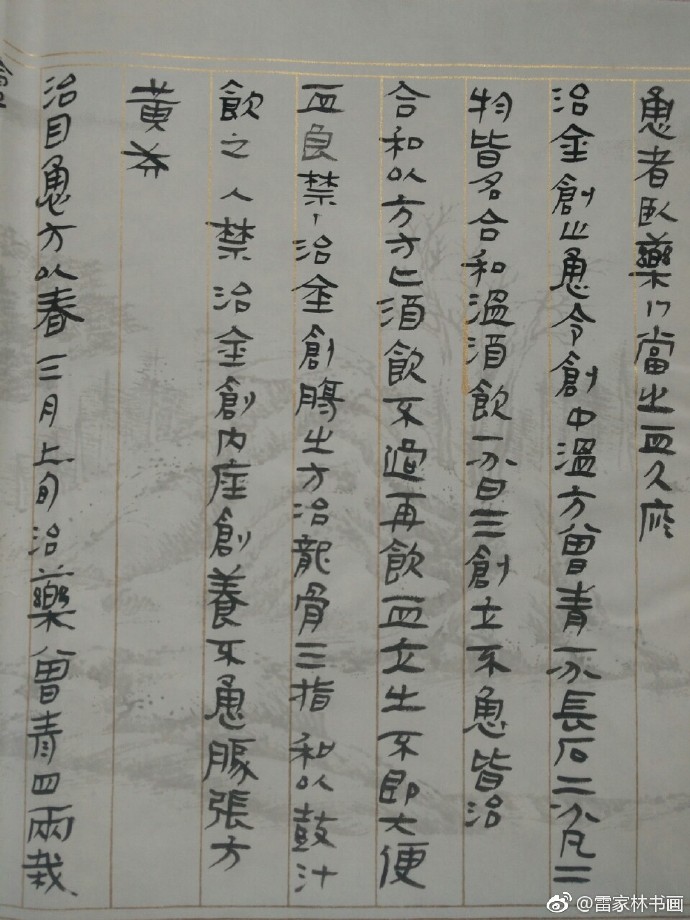 恿者臥藥以當出血久瘀
治金創止恿令創中溫方曾青一分長石二分凡二
物皆冶合和溫酒飲一分日三創立不恿皆治
合和以方寸匕酒飲不過再飲血立出不即大便
血良禁〻治金創腸出方冶龍骨三指和以鼓汁
飲之〻禁治金創內痤創養不恿腹張方
黃芩
治目恿方以春三月上旬治藥曾青四兩戎
@雷家林书画